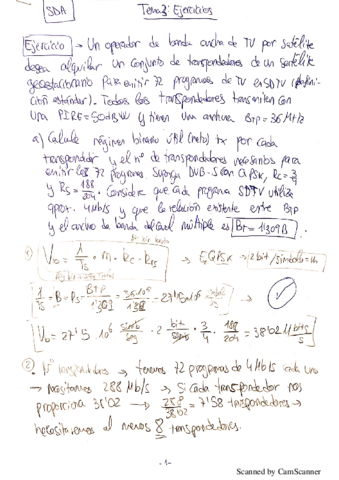 SDA
Tema 3: Ejercicios
Ejercicio → Un operador de banda ancha de TV por satélite
desea alquilar un conjunto de transpondadores de un satélite
geoestacionario para emitir 72 programas de TV en SDTV (definición estándar). Todos los transpondadores transmiten con
una PIRE = 50dBW y tienen una anchura BTP = 36 MHz
a) Calcule régimen binario útil (neto) tx por cada
transpondador y el nº de transpondadores necesarios para
emitir los 72 programas. Suponga DVB-S con QPSK, Rc = 3/4
y Rs = 188/204. Considere que cada programa SDTV utiliza
aprox. 4 Mb/s y que la relación existente entre BTP
y el ancho de banda del canal múltiple es BTP = 1'309 B
①
Vb = 1/Ts · m · Rc · RRS → QPSK → 2 bit/símbolo = m
1/Ts = B = Rs =
Vb = 27'5 10⁶ símb/seg · 2 bit/símb · 3/4 · 188/204 = 38'02 Mbits/s
② Nº transpondadores → tenemos 72 programas de 4 Mb/s cada uno
→ necesitamos 288 Mb/s → Si cada transpondedor nos
proporciona 38'02 → 288/38'02 = 7'58 transpondedores →
necesitaremos al menos 8 transpondedores.
-1-
Scanned by CamScanner